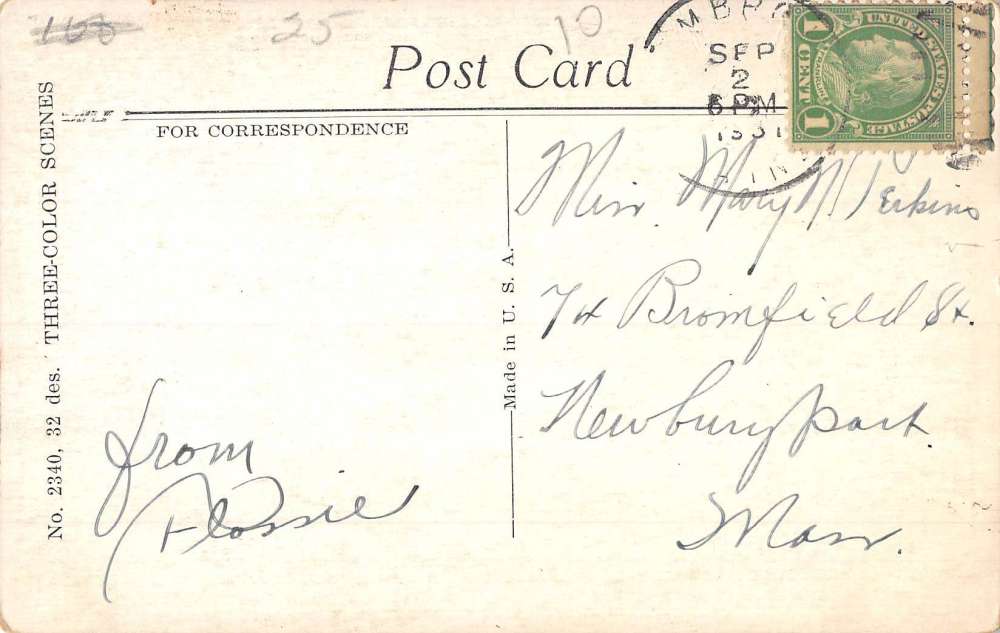 168
25
10
Post Card
SEP
2
6 PM
1931
UNITED STATES POSTAGE
1 CENT 1
FOR CORRESPONDENCE
No. 2340, 32 des. THREE-COLOR SCENES
Made in U. S. A.
Miss. Mary N. Perkins
74 Bromfield St.
Newburyport.
Mass.
from
Flossie